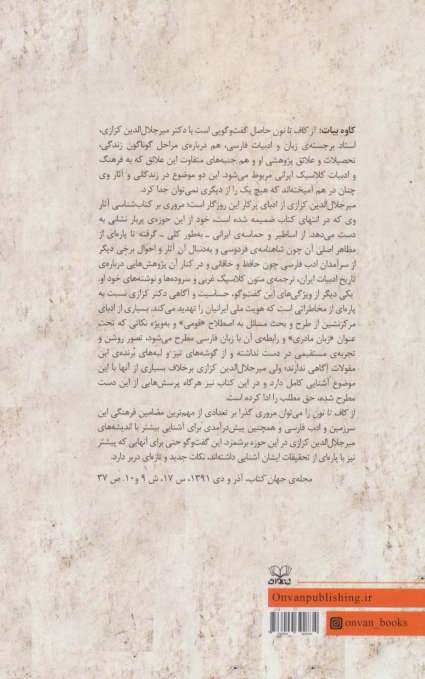 کاوه بیات: از کاف تا نون حاصل گفت‌وگویی است با دکتر میرجلال‌الدین کزازی،
استاد برجسته‌ی زبان و ادبیات فارسی، هم درباره‌ی مراحل گوناگون زندگی،
تحصیلات و علائق پژوهشی او و هم جنبه‌های متفاوت این علائق که به فرهنگ
و ادبیات کلاسیک ایرانی مربوط می‌شود. این دو موضوع در زندگانی و آثار وی
چنان در هم آمیخته‌اند که هیچ یک را از دیگری نمی‌توان جدا کرد.
میرجلال‌الدین کزازی از ادبای پرکار این روزگار است؛ مروری بر کتاب‌شناسی آثار
وی که در انتهای کتاب ضمیمه شده است، خود از این حوزه‌ی پربار نشانی به
دست می‌دهد. از اساطیر و حماسه‌ی ایرانی ـ به‌طور کلی ـ گرفته تا پاره‌ای از
مظاهر اصلی آن چون شاهنامه‌ی فردوسی و به‌دنبال آن آثار و احوال برخی دیگر
از سرآمدان ادب فارسی چون حافظ و خاقانی و در کنار آن پژوهش‌هایی درباره‌ی
تاریخ ادبیات ایران، ترجمه‌ی متون کلاسیک غربی و سروده‌ها و نوشته‌های خود او.
یکی دیگر از ویژگی‌های این گفت‌وگو، حساسیت و آگاهی دکتر کزازی نسبت به
پاره‌ای از مخاطراتی است که هویت ملی ایرانیان را تهدید می‌کند. بسیاری از ادبای
مرکزنشین از طرح و بحث مسائل به اصطلاح «قومی» و به‌ویژه نکاتی که تحت
عنوان «زبان مادری» و رابطه‌ی آن با زبان فارسی مطرح می‌شود، تصور روشن و
تجربه‌ی مستقیمی در دست نداشته و از گوشه‌های تیز و لبه‌های بُرنده‌ی این
مقولات آگاهی ندارند؛ ولی میرجلال‌الدین کزازی برخلاف بسیاری از آنها با این
موضوع آشنایی کامل دارد و در این کتاب نیز هرگاه پرسش‌هایی از این دست
مطرح شده، حق مطلب را ادا کرده است.
از کاف تا نون را می‌توان مروری گذرا بر تعدادی از مهم‌ترین مضامین فرهنگی این
سرزمین و ادب فارسی و همچنین پیش‌درآمدی برای آشنایی بیشتر با اندیشه‌های
میرجلال‌الدین کزازی در این حوزه برشمرد. این گفت‌وگو حتی برای آنهایی که پیشتر
نیز با پاره‌ای از تحقیقات ایشان آشنایی داشته‌اند، نکات جدید و تازه‌ای دربر دارد.
مجله‌ی جهان کتاب، آذر و دی ۱۳۹۱، س ۱۷، ش ۹ و ۱۰. ص ۳۷
عنوان
Onvanpublishing.ir
onvan_books